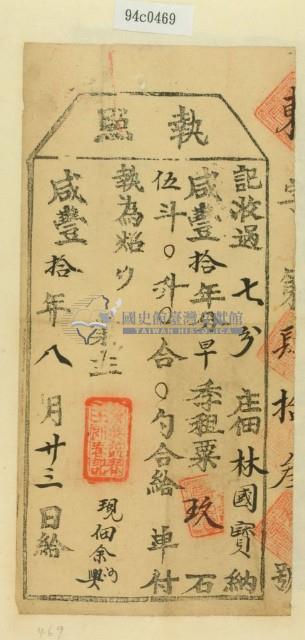 94c0469
執照
記收過七分庄佃林國寶納
咸豐拾年分早季租粟玖石
伍斗〇升〇合〇勺合給単付
執為炤
咸豐拾年八月廿三日給
現佃余興
東字第肆拾叁號
國史館臺灣文獻館
TAIWAN HISTORICA
469